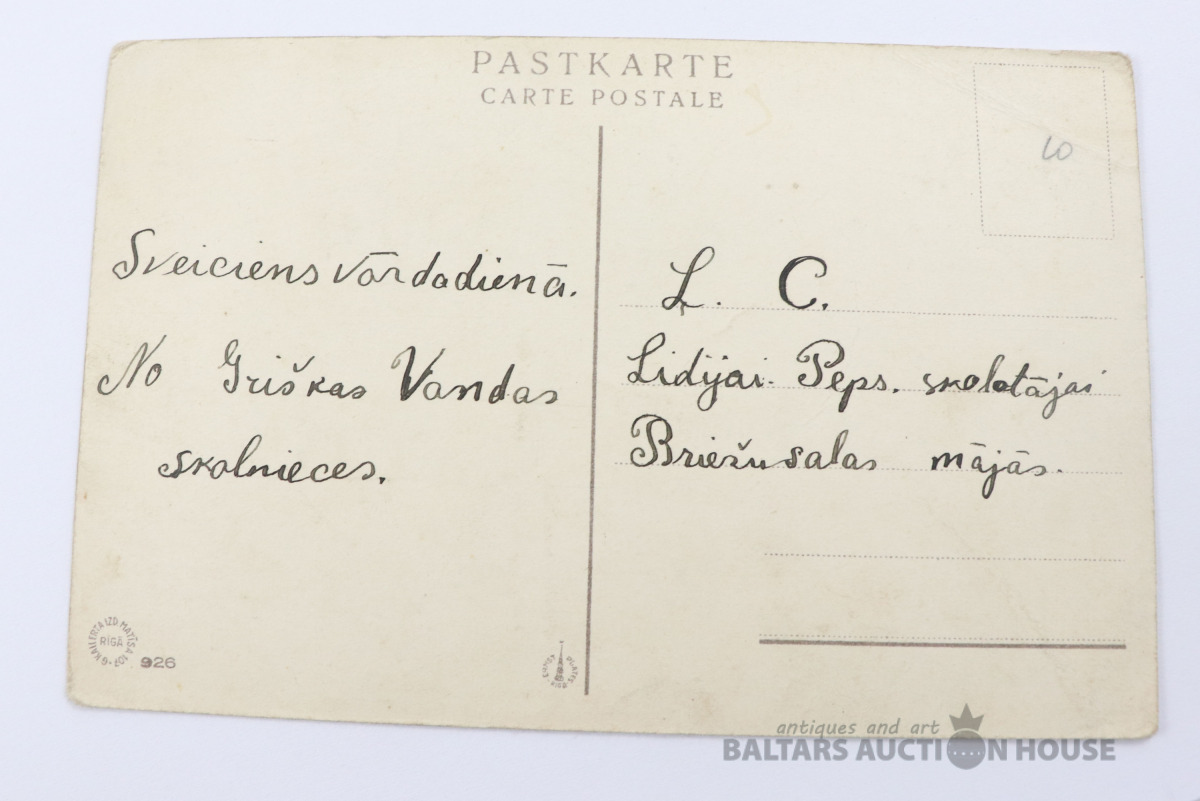 PASTKARTE
CARTE POSTALE
LO
Sveiciens vārdadienā.
No Griškas Vandas
skolnieces.
L. C.
Lidijai Peps. skolotājai
Briežusalas mājās.
G. KAILERTA IZD. MATĪSA 107
RĪGĀ
926
antiques and art
BALTARS AUCTION HOUSE